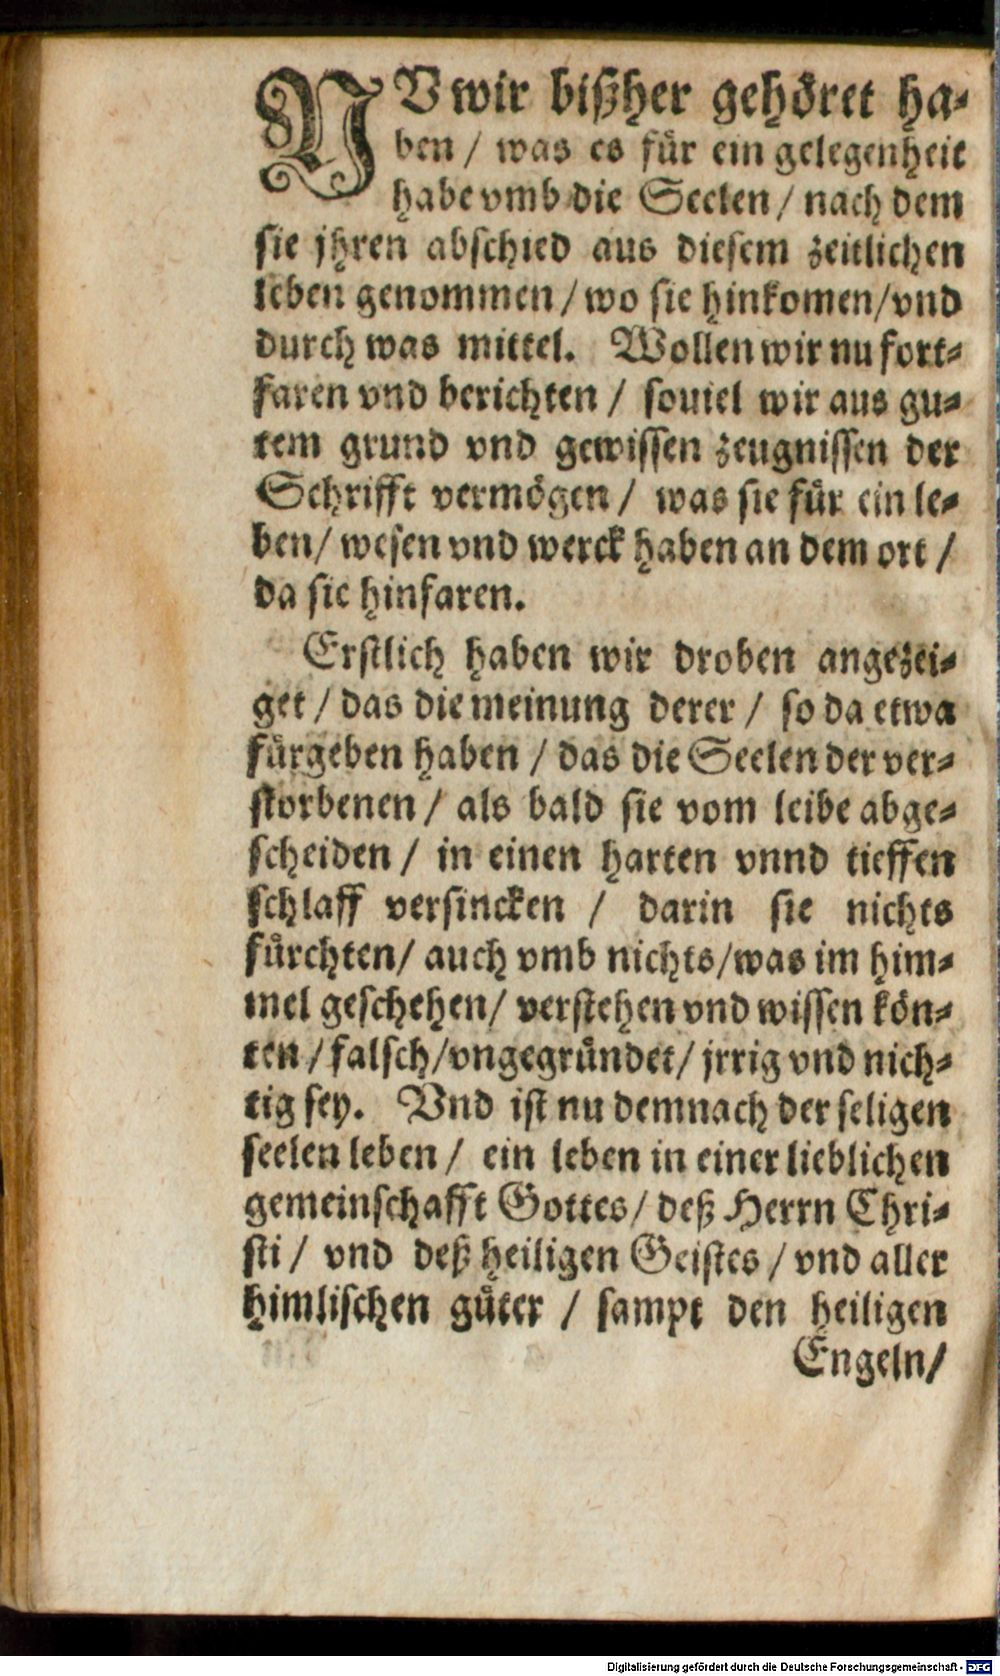 NV wir bißher gehöret ha-
ben / was es für ein gelegenheit
habe vmb die Seelen / nach dem
sie jhren abschied aus diesem zeitlichen
leben genommen / wo sie hinkomen / vnd
durch was mittel. Wollen wir nu fort-
faren vnd berichten / souiel wir aus gu-
tem grund vnd gewissen zeugnissen der
Schrifft vermögen / was sie für ein le-
ben / wesen vnd werck haben an dem ort /
da sie hinfaren.
Erstlich haben wir droben angezei-
get / das die meinung derer / so da etwa
fürgeben haben / das die Seelen der ver-
storbenen / als bald sie vom leibe abge-
scheiden / in einen harten vnnd tieffen
schlaff versincken / darin sie nichts
fürchten / auch vmb nichts / was im him-
mel geschehen / verstehen vnd wissen kön-
ten / falsch / vngegründet / jrrig vnd nich-
tig sey. Vnd ist nu demnach der seligen
seelen leben / ein leben in einer lieblichen
gemeinschafft Gottes / deß Herrn Chri-
sti / vnd deß heiligen Geistes / vnd aller
himlischen güter / sampt den heiligen
Engeln /
Digitalisierung gefördert durch die Deutsche Forschungsgemeinschaft - DFG